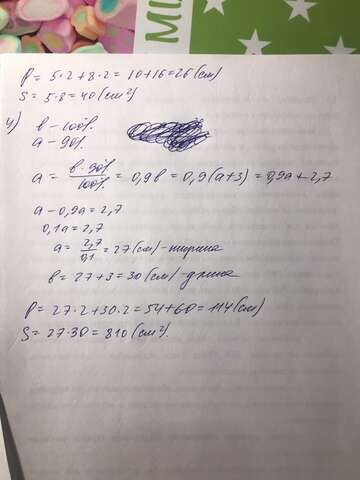 MIL
P = 5·2+8·2 = 10+16=26(см)
S = 5·8=40(см²)
4) b – 100%.
a – 90%.
a = b·90% / 100% = 0,9b = 0,9(a+3) = 0,9a + 2,7
a – 0,9a = 2,7
0,1a = 2,7
a = 2,7 / 0,1 = 27(см) – ширина
b = 27+3 = 30(см) – длина
P = 27·2+30·2 = 54+60 = 114(см)
S = 27·30 = 810(см²).